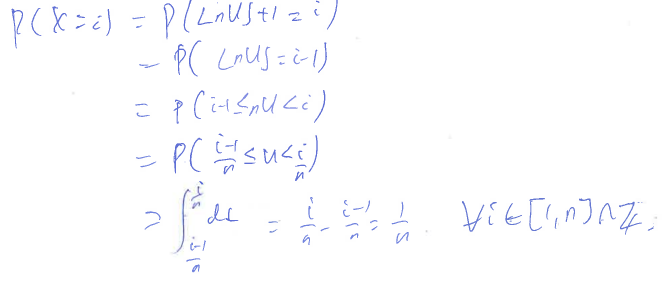 P(X=i) = P(⌊nU⌋+1=i)
= P(⌊nU⌋=i-1)
= P(i-1≤nU<i)
= P(\frac{i-1}{n}≤U<\frac{i}{n})
= ∫_{\frac{i-1}{n}}^{\frac{i}{n}} dx = \frac{i}{n}-\frac{i-1}{n}=\frac{1}{n}. ∀i∈[1,n]∩ℤ.